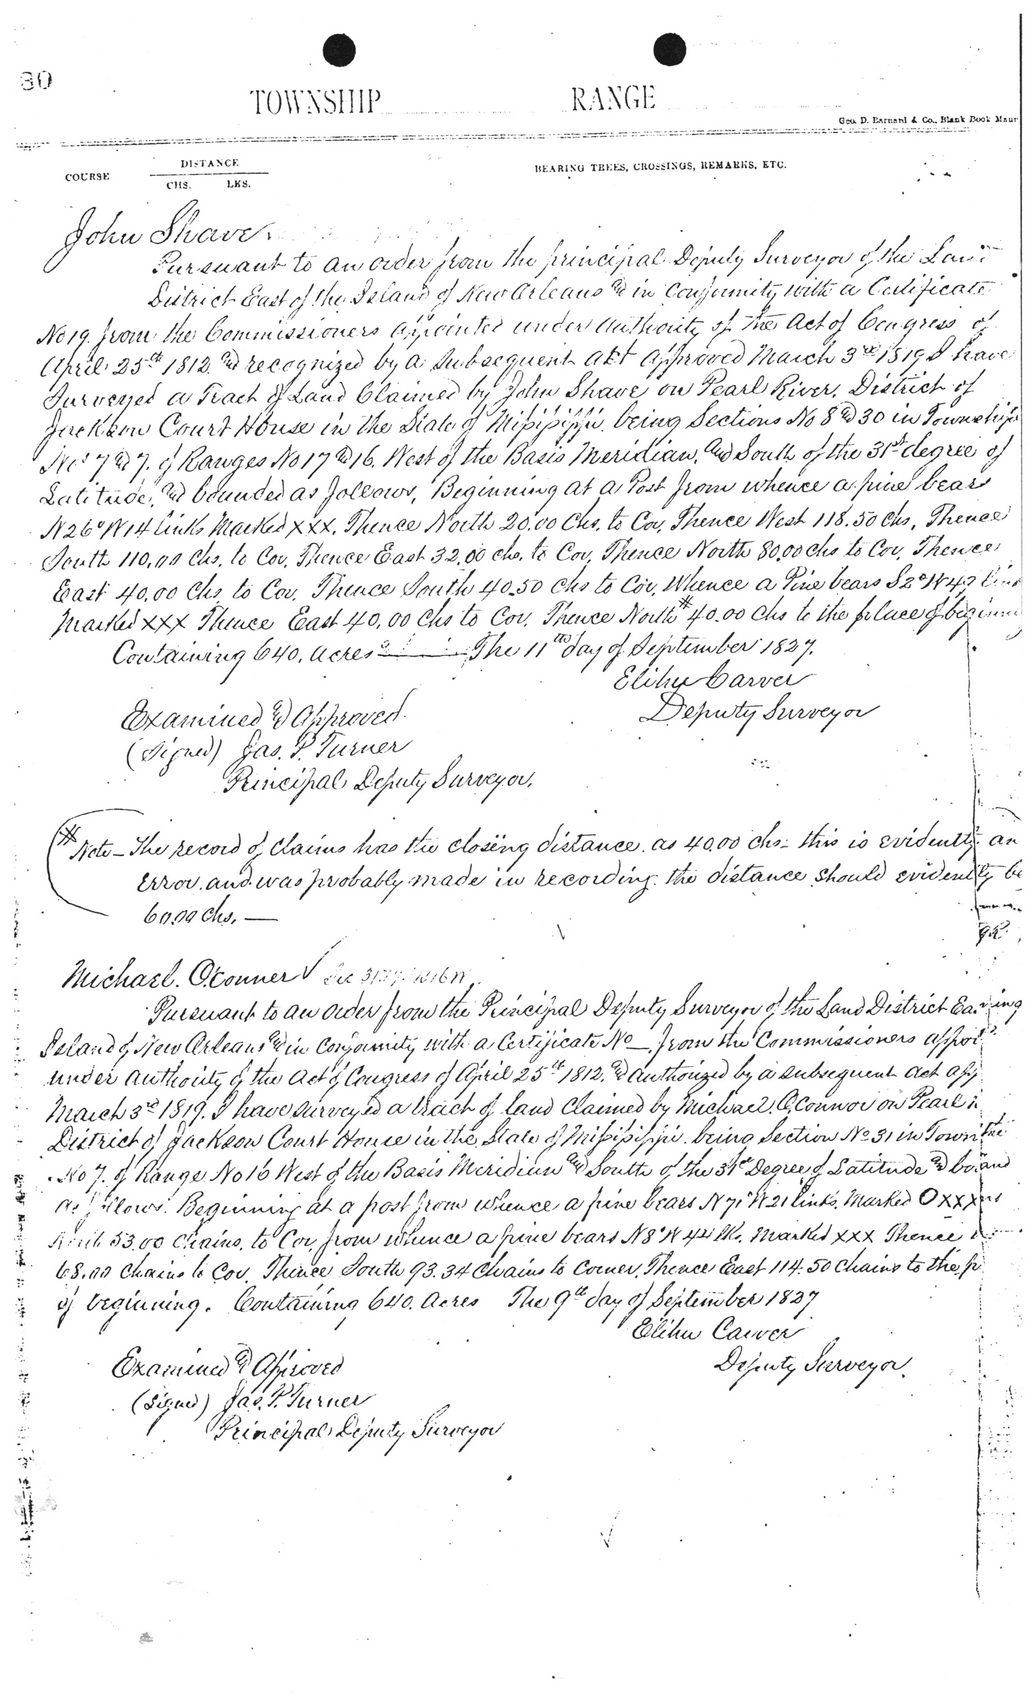 80
TOWNSHIP RANGE
Geo. D. Barnard & Co., Blank Book Manu
DISTANCE
COURSE CHS. LKS. BEARING TREES, CROSSINGS, REMARKS, ETC.
John Shave.
Pursuant to an order from the principal Deputy Surveyor of the Land
District East of the Island of New Orleans & in Conformity with a Certificate
No 19 from the Commissioners appointed under authority of the Act of Congress of
April 25th 1812 & recognized by a subsequent act approved March 3rd 1819 I have
Surveyed a Tract of Land Claimed by John Shave on Pearl River, District of
Jackson Court House in the State of Missisippi, being Sections No 8 & 30 in Townships
Nos 7 & 7. of Ranges No 17 & 16, West of the Basis Meridian, & South of the 31st degree of
Latitude, & bounded as follows, Beginning at a Post from whence a pine bears
N 26° W 14 links Marked XXX. Thence North 20.00 Chs. to Cor. Thence West 118.50 Chs, Thence
South 110.00 Chs. to Cor. Thence East 32.00 chs. to Cor, Thence North 80.00 chs to Cor, Thence
East 40.00 Chs. to Cor. Thence South 40.50 Chs to Cor, Whence a Pine bears S 2° W 47 link
Marked XXX Thence East 40.00 Chs to Cor. Thence North # 40.00 Chs to the place of beginn
Containing 640. acres The 11th day of September 1827.
Elihu Carver
Deputy Surveyor
Examined & Approved.
(Signed) Jas. P. Turner
Principal Deputy Surveyor.
# Note – The record of claims has the closing distance as 40.00 chs – this is evidently an
error and was probably made in recording. the distance should evidently be
60.00 Chs. —
Michael. O'Conner ✓ Sec 31
Pursuant to an order from the Principal Deputy Surveyor of the Land District Eas
Island of New Orleans & in Conformity with a Certificate No — from the Commissioners appoi
under authority of the Act of Congress of April 25th 1812, & authorized by a subsequent act app
March 3rd 1819. I have surveyed a tract of land Claimed by Michael. O'Connor on Pearl
District of Jackson Court House in the State of Missisippi being Section No 31 in Town
No 7. of Range No 16 West of the Basis Meridian & South of the 31st Degree of Latitude & bo
as follows. Beginning at a post from whence a pine bears N 71° W 21 links. Marked O XXX
North 53.00 Chains, to Cor. from whence a pine bears N 8° W 44 lk. Marked XXX Thence
68.00 Chains to Cor. Thence South 93.34 Chains to Corner, Thence East 114.50 Chains to the p
of beginning. Containing 640. Acres The 9th day of September 1827
Elihu Carver
Deputy Surveyor.
Examined & Approved
(Signed) Jas. P. Turner
Principal Deputy Surveyor